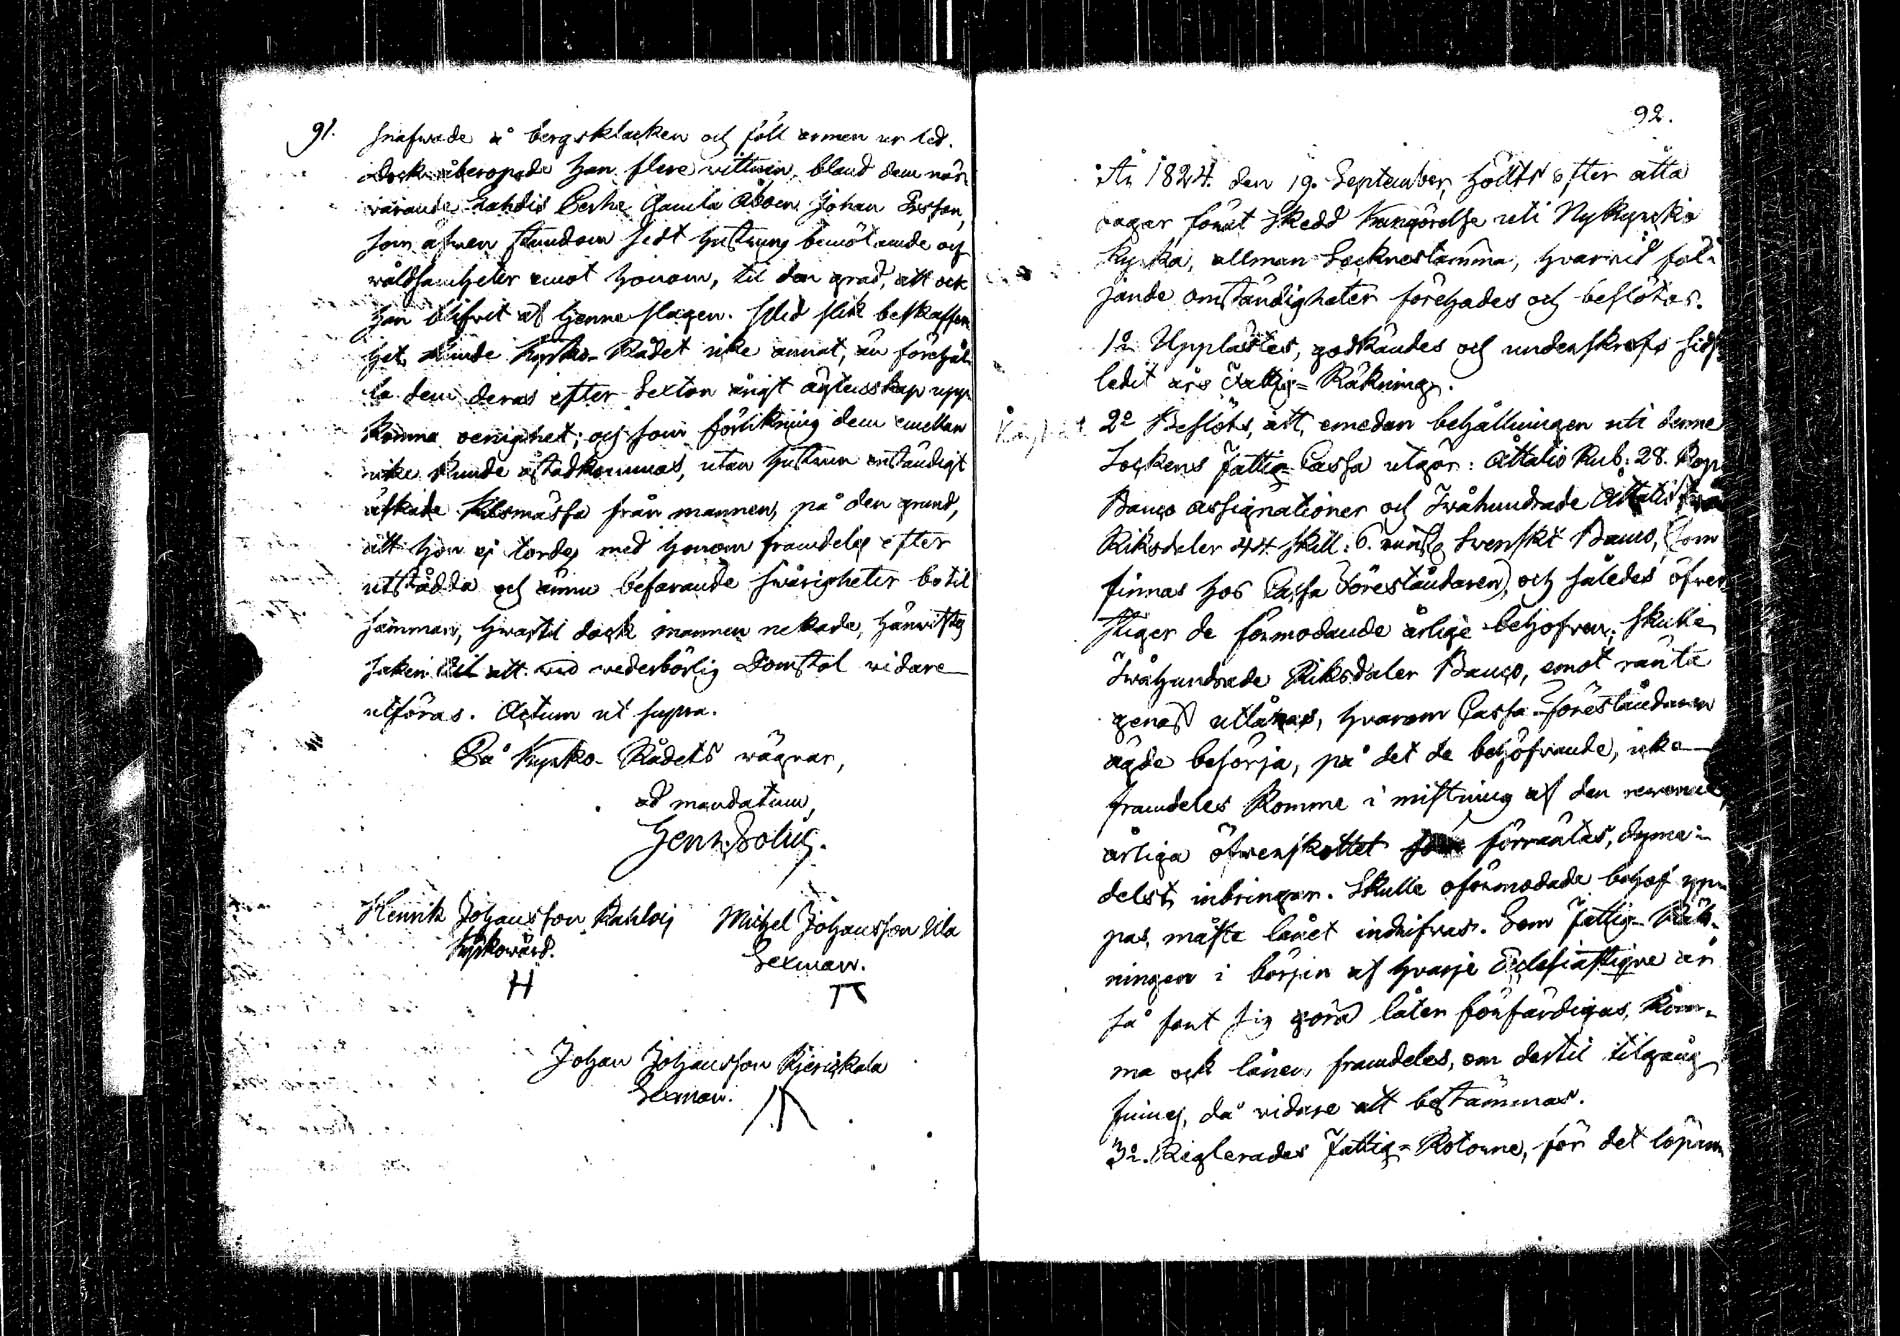 91.
snafwade å bergsklacken och föll armen ur led.
Dock åberopade han flere wittnen, bland dem när
warande Gamla Åboen Johan Ersson,
som äfwen stundom sedt hustrung bemötande och
wåldsamheter emot honom, til den grad, att ock
han blifwit af henne slagen. Wid slik beskaffen
het, kunde Kyrko-Rådet icke annat, än förehål
la dem deras efter Sexton årigt ägtenskap upp
komna oenighet; och som förlikning dem emellan
icke kunde åstadkommas, utan hustrun enständigt
äskade skilsmässa från mannen, på den grund,
att hon ej tordes med honom framdeles efter
utstådda och ännu befarande swårigheter bo til
samman, hwartil dock mannen nekade, hänwistes
saken til att wid wederbörlig Domstol vidare
utföras. Actum ut supra.
På Kyrko-Rådets wägnar,
ad mandatum,
Henr.
Henrik Johansson
Kyrkowärd.
H
Michel Johansson
Sexman.
Johan Johansson
Sexman.
92.
År 1824. den 19. September, hölts efter åtta
dagar förut skedd kungörelse uti Nykyrko
kyrka, allmän Socknestämma, hwarwid föl-
jande omständigheter förehades och beslötos.
1o Upplästes, godkändes och underskrefs sidst
ledit års Fattig-Räkning.
2o Beslöts, att, emedan behållningen uti denne
Sockens Fattig-Cassa utgör: Åttatio Rub: 28. Kop
Banco assignationer och Twåhundrade Åttatio
Riksdaler 44 skill: 6. Svenskt Banco, (som
finnas hos Cassa Föreståndaren) och således öfwer
stiger de förmodande årlige behofwen, skulle
Twåhundrade Riksdaler Banco, emot ränta
genast utlånas, hwarom Cassa-föreståndaren
ägde besörja, på det de behöfwande, icke
framdeles komme i mistning af den revenue,
årliga öfwerskottet förräntas, dyme-
delst inbringar. Skulle oförmodade behof yp-
pas, måste lånet indrifwas. Som Fattig-Räk-
ningen i början af hwarje Ecclesiastique år
så fort sig göra låter förfärdigas, kom-
ma ock lånen, framdeles, om dertil tilgång
finnes, då vidare att bestämmas.
3o. Reglerades Fattig-Rotorne, för det löpan